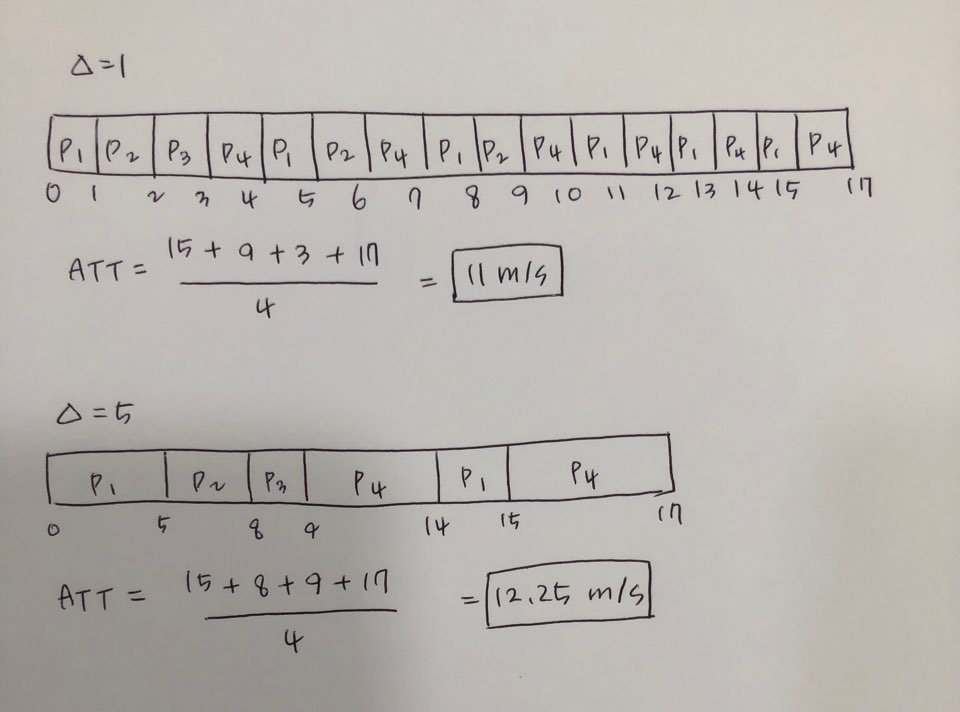 Δ=1
P1 P2 P3 P4 P1 P2 P4 P1 P2 P4 P1 P4 P1 P4 P1 P4
0 1 2 3 4 5 6 7 8 9 10 11 12 13 14 15 17
15 + 9 + 3 + 17
ATT = = 11 m/s
4
Δ=5
P1 P2 P3 P4 P1 P4
0 5 8 9 14 15 17
15 + 8 + 9 + 17
ATT = = 12.25 m/s
4